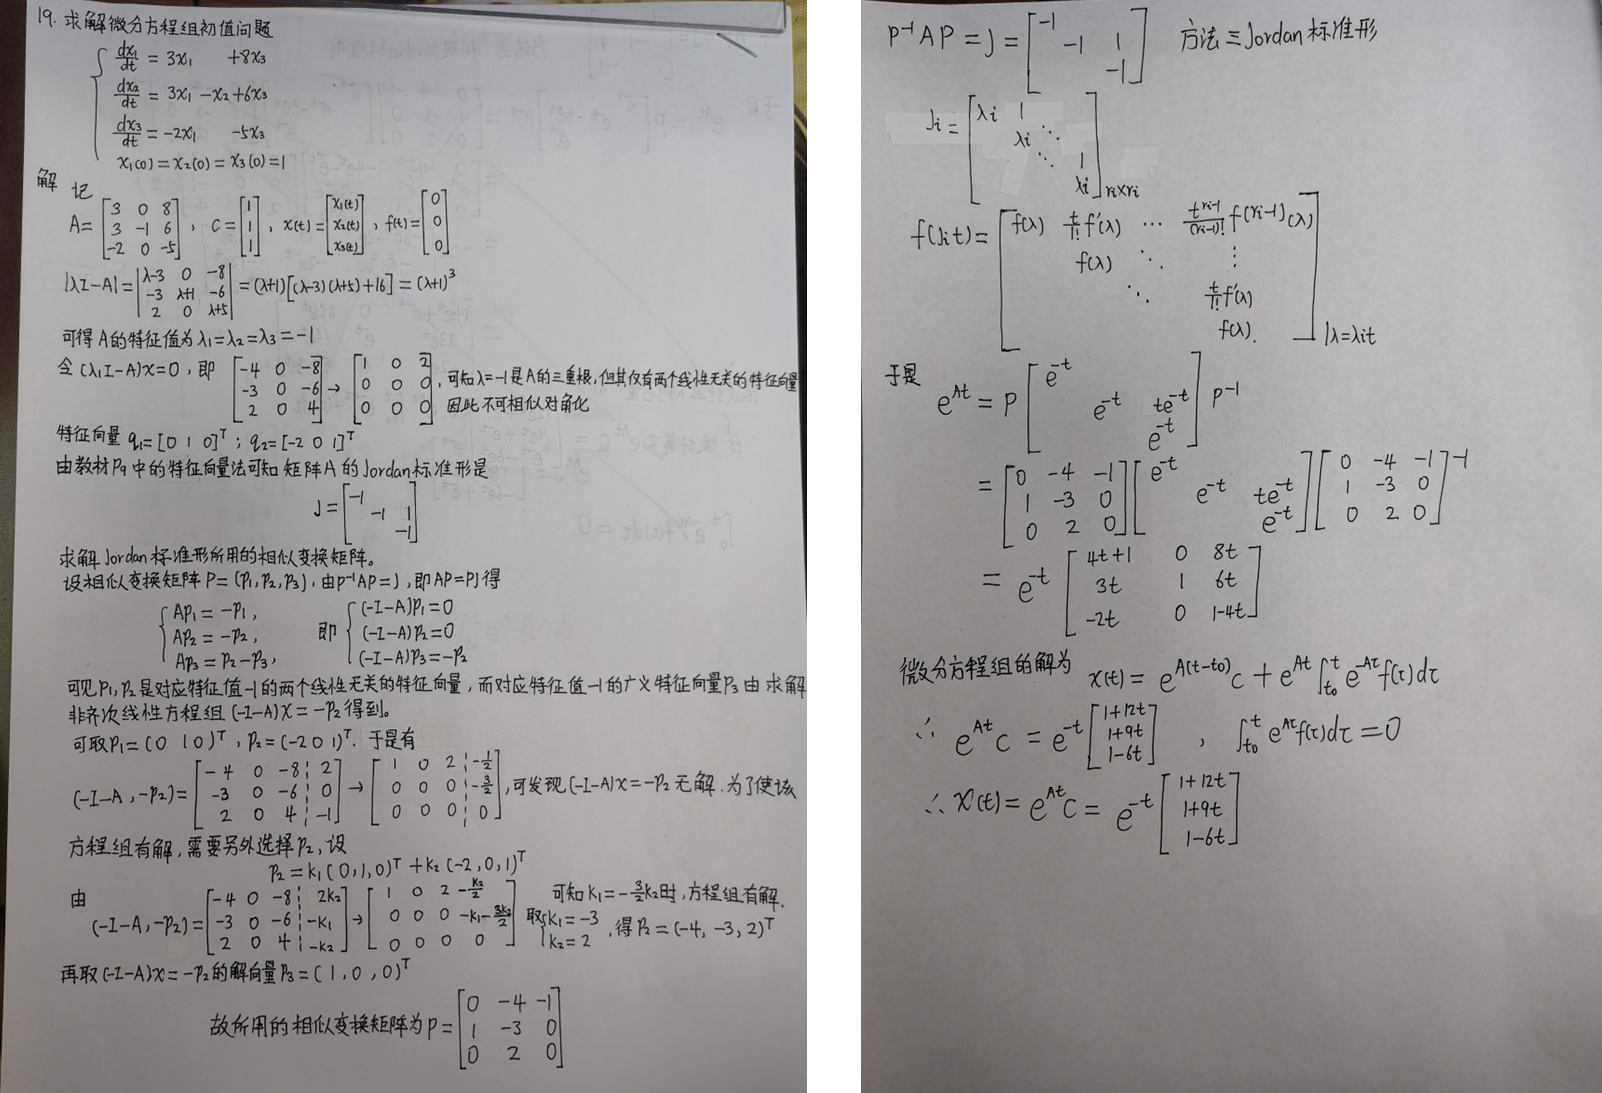 19. 求解微分方程组初值问题
dx₁/dt = 3x₁ +8x₃
dx₂/dt = 3x₁ -x₂ +6x₃
dx₃/dt = -2x₁ -5x₃
x₁(0) = x₂(0) = x₃(0) = 1
解 记
A = [3 0 8; 3 -1 6; -2 0 -5], C = [1; 1; 1], x(t) = [x₁(t); x₂(t); x₃(t)], f(t) = [0; 0; 0]
|λI-A| = |λ-3 0 -8; -3 λ+1 -6; 2 0 λ+5| = (λ+1)[(λ-3)(λ+5)+16] = (λ+1)³
可得A的特征值为 λ₁=λ₂=λ₃=-1
令 (λ₁I-A)x=0, 即 [-4 0 -8; -3 0 -6; 2 0 4] → [1 0 2; 0 0 0; 0 0 0], 可知λ=-1是A的三重根,但其仅有两个线性无关的特征向量
因此不可相似对角化
特征向量 q₁=[0 1 0]ᵀ; q₂=[-2 0 1]ᵀ
由教材P9中的特征向量法可知矩阵A的Jordan标准形是
J = [-1; -1 1; -1]
求解Jordan标准形所用的相似变换矩阵。
设相似变换矩阵 P=(P₁,P₂,P₃), 由P⁻¹AP=J, 即AP=PJ得
AP₁ = -P₁, 即 (-I-A)P₁=0
AP₂ = -P₂, (-I-A)P₂=0
AP₃ = P₂-P₃, (-I-A)P₃=-P₂
可见P₁,P₂是对应特征值-1的两个线性无关的特征向量,而对应特征值-1的广义特征向量P₃由求解
非齐次线性方程组 (-I-A)x=-P₂得到。
可取P₁=(0 1 0)ᵀ, P₂=(-2 0 1)ᵀ. 于是有
(-I-A, -P₂) = [-4 0 -8 2; -3 0 -6 0; 2 0 4 -1] → [1 0 2 -1/2; 0 0 0 -3/2; 0 0 0 0], 可发现(-I-A)x=-P₂无解.为了使该
方程组有解,需要另外选择P₂,设
P₂ = k₁(0,1,0)ᵀ + k₂(-2,0,1)ᵀ
由 (-I-A,-P₂) = [-4 0 -8 2k₂; -3 0 -6 -k₁; 2 0 4 -k₂] → [1 0 2 -k₂/2; 0 0 0 -k₁-3k₂/2; 0 0 0 0] 可知k₁=-3/2k₂时,方程组有解.
取{k₁=-3 k₂=2, 得P₂=(-4, -3, 2)ᵀ
再取(-I-A)x=-P₂的解向量P₃=(1,0,0)ᵀ
故所用的相似变换矩阵为P = [0 -4 -1; 1 -3 0; 0 2 0]
P⁻¹AP = J = [-1; -1 1; -1] 方法三 Jordan标准形
Ji = [λi 1; λi ⋱; ⋱ 1; λi] ri×ri
f(Jit) = [f(λ) t/1! f'(λ) ⋯ t^(ri-1)/(ri-1)! f^(ri-1)(λ); f(λ) ⋱ ⋮; ⋱ t/1! f'(λ); f(λ).] |λ=λit
于是
e^At = P [e^-t; e^-t te^-t; e^-t] P⁻¹
= [0 -4 -1; 1 -3 0; 0 2 0] [e^-t; e^-t te^-t; e^-t] [0 -4 -1; 1 -3 0; 0 2 0]⁻¹
= e^-t [4t+1 0 8t; 3t 1 6t; -2t 0 1-4t]
微分方程组的解为 x(t) = e^A(t-t₀) C + e^At ∫_t₀^t e^-Aτ f(τ)dτ
∴ e^At C = e^-t [1+12t; 1+9t; 1-6t], ∫_t₀^t e^Aτ f(τ)dτ = 0
∴ x(t) = e^At C = e^-t [1+12t; 1+9t; 1-6t]